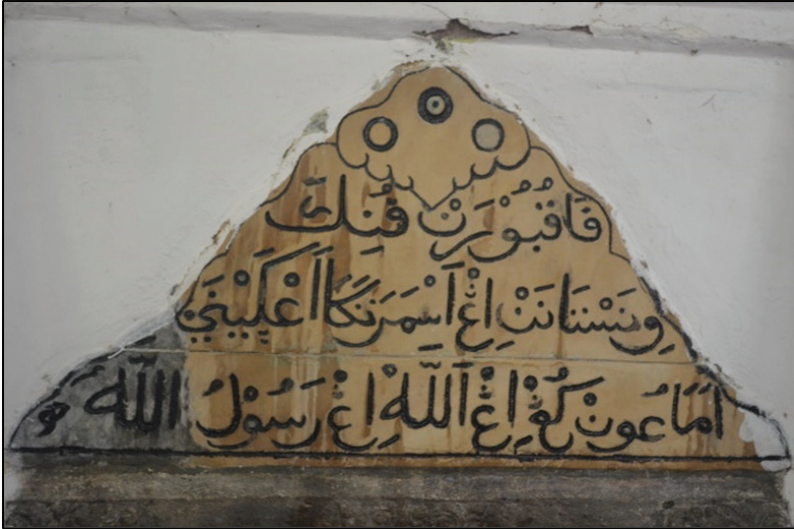 فَاقُبُوْرَنْ فُنِكَ
وِنَسْتَانَنْ اِڠْ اَسْمَرَنْكَا
اَمَاعُونْ كُڠْ اِڠْ اَللّٰهْ اِڠْ رَسُوْلُ اللّٰه